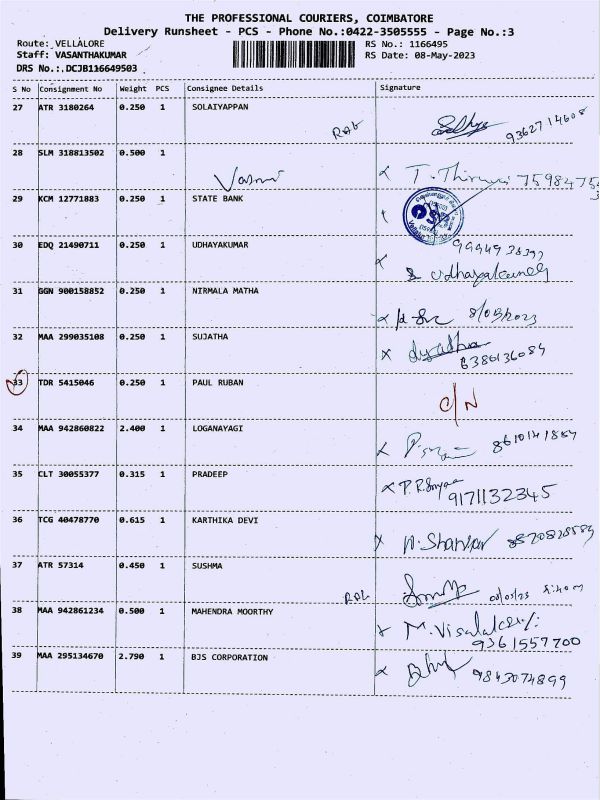 THE PROFESSIONAL COURIERS, COIMBATORE
Delivery Runsheet - PCS - Phone No.:0422-3505555 - Page No.:3
Route: VELLALORE RS No.: 1166495
Staff: VASANTHAKUMAR RS Date: 08-May-2023
DRS No.:.DCJB116649503
S No Consignment No Weight PCS Consignee Details Signature
27 ATR 3180264 0.250 1 SOLAIYAPPAN
9362714608
28 SLM 318813502 0.500 1
T. 
29 KCM 12771883 0.250 1 STATE BANK
30 EDQ 21490711 0.250 1 UDHAYAKUMAR
31 GGN 900158852 0.250 1 NIRMALA MATHA
8/05/2023
32 MAA 299035108 0.250 1 SUJATHA
6380136084
33 TDR 5415046 0.250 1 PAUL RUBAN
C/N
34 MAA 942860822 2.400 1 LOGANAYAGI
35 CLT 30055377 0.315 1 PRADEEP
9171132345
36 TCG 40478770 0.615 1 KARTHIKA DEVI
37 ATR 57314 0.450 1 SUSHMA
38 MAA 942861234 0.500 1 MAHENDRA MOORTHY
9361557700
39 MAA 295134670 2.790 1 BJS CORPORATION
9843074899